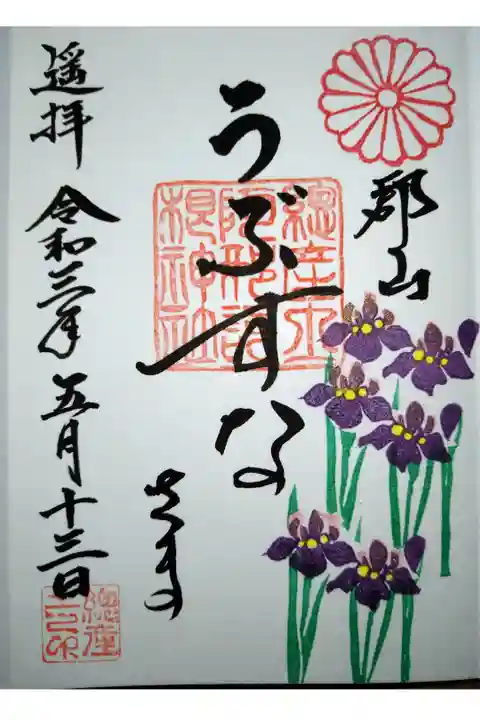 郡山
うぶすな
さま
總産土
阿邪訶
根神社
遥拝 令和三年五月十三日